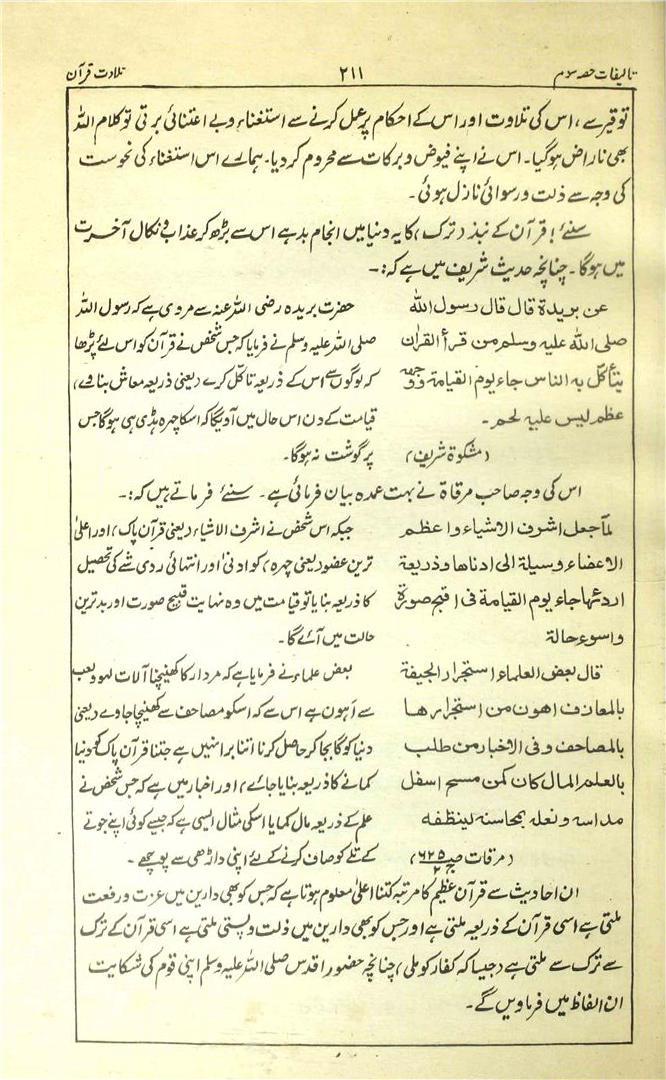 تالیفات حصہ سوم ۲۱۱ تلاوت قرآن
توقیر سے، اس کی تلاوت اور اس کے احکام پر عمل کرنے سے استغناء و بے اعتنائی برتی تو کلام اللہ
بھی ناراض ہو گیا۔ اس نے اپنے فیوض و برکات سے محروم کر دیا۔ ہمارے اس استغناء کی نحوست
کی وجہ سے ذلت و رسوائی نازل ہوئی۔
سنئے! قرآن کے نبذ (ترک) کا یہ دنیا میں انجام بد ہے اس سے بڑھ کر عذاب و نکال آخرت
میں ہوگا۔ چنانچہ حدیث شریف میں ہے کہ:۔
عن بریدۃ قال قال رسول اللہ
صلی اللہ علیہ وسلم من قرأ القران
یتأکل بہ الناس جاء یوم القیامۃ ووجھہ
عظم لیس علیہ لحم۔
(مشکوٰۃ شریف)
حضرت بریدہ رضی اللہ عنہ سے مروی ہے کہ رسول اللہ
صلی اللہ علیہ وسلم نے فرمایا کہ جس شخص نے قرآن کو اس لئے پڑھا
کہ لوگوں سے اس کے ذریعہ تأکل کرے (یعنی ذریعہ معاش بناوے)
قیامت کے دن اس حال میں آویگا کہ اسکا چہرہ ہڈی ہی ہوگا جس
پر گوشت نہ ہوگا۔
اس کی وجہ صاحب مرقاۃ نے بہت عمدہ بیان فرمائی ہے۔ سنئے فرماتے ہیں کہ:۔
لما جعل اشرف الاشیاء و اعظم
الاعضاء وسیلۃ الی ادناھا و ذریعۃ
اردئھا جاء یوم القیامۃ فی اقبح صورۃ
و اسوء حالۃ
جبکہ اس شخص نے اشرف الاشیاء (یعنی قرآن پاک) اور اعلیٰ
ترین عضو (یعنی چہرہ) کو ادنیٰ اور انتہائی ردی شے کی تحصیل
کا ذریعہ بنایا تو قیامت میں وہ نہایت قبیح صورت اور بدترین
حالت میں آئے گا۔
قال بعض العلماء استجرار الجیفۃ
بالمعازف اھون من استجرارھا
بالمصاحف وفی الاخبار من طلب
بالعلم المال کان کمن مسح اسفل
مداسہ و نعلہ بمحاسنہ لینظفہ
(مرقات ص ۶۲۵ ج ۲)
بعض علماء نے فرمایا ہے کہ مردار کا کھینچنا آلات لہو و لعب
سے اہون ہے اس سے کہ اسکو مصاحف سے کھینچا جاوے (یعنی
دنیا کو گا بجا کر حاصل کرنا اتنا برا نہیں ہے جتنا قرآن پاک کو دنیا
کمانے کا ذریعہ بنایا جائے) اور اخبار میں ہے کہ جس شخص نے
علم کے ذریعہ مال کمایا اسکی مثال ایسی ہے کہ جیسے کوئی اپنے جوتے
کے تلے کو صاف کرنے کے لئے اپنی داڑھی سے پوچھے۔
ان احادیث سے قرآن عظیم کا مرتبہ کتنا اعلیٰ معلوم ہوتا ہے کہ جس کو بھی دارین میں عزت و رفعت
ملتی ہے اسی قرآن کے ذریعہ ملتی ہے اور جس کو بھی دارین میں ذلت و پستی ملتی ہے اسی قرآن کے ترک
سے ترک سے ملتی ہے (جیسا کہ کفار کو ملی) چنانچہ حضور اقدس صلی اللہ علیہ وسلم اپنی قوم کی شکایت
ان الفاظ میں فرماویں گے۔